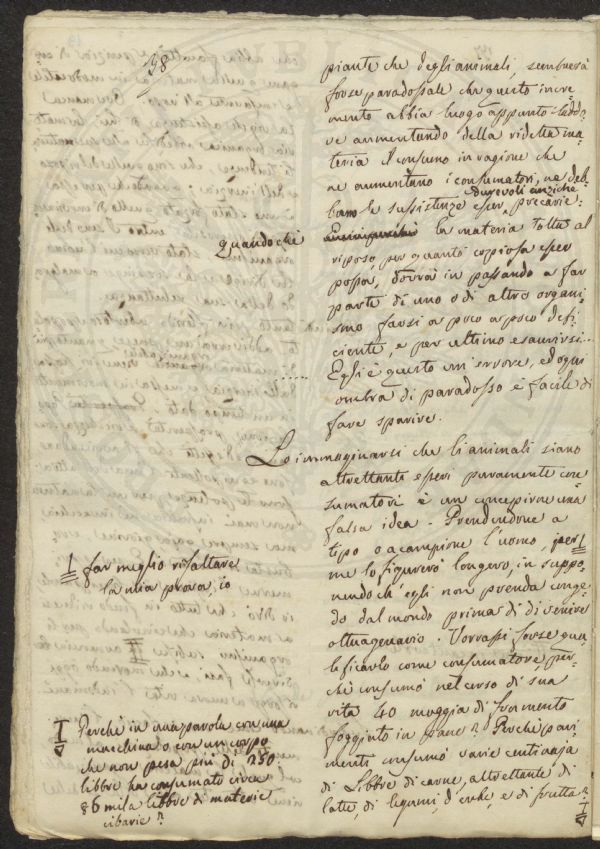 98
piante che degli animali, sembrerà
forse paradossale che questo incre
mento abbia luogo appunto laddo
ve aumentando della ridetta ma
teria il consumo in ragione che
ne aumentano i consumatori, ne deb
bano le sussistenze esser precarie:
durevoli anziche
Quando che
la materia tolta al
riposo, per quanto copiosa esser
possa, dovrà in passando a far
parte di uno o di altro organi
smo farsi a poco a poco defi
ciente, e per ultimo esaurirsi...
Egli è questo un errore, ed ogni
ombra di paradosso è facile di
fare sparire.
Lo immaginarsi che li animali siano
altrettanti esseri puramente con
sumatori è un concepirne una
falsa idea. Prendendone a
tipo o a campione l'uomo, per
me lo figurerò longevo, in suppo
nendo ch'egli non prenda conge
do dal mondo prima di divenire
ottuagenario. Vorrassi forse qua
lificarlo come consumatore, per
chè consumò nel corso di sua
vita 40 moggia di frumento
foggiato in pane? Perchè pari
menti consumò varie centinaja
di Libbre di carne, altrettante di
latte, di legumi, d'erbe, e di frutta?
I far meglio risaltare
la mia prova, io
I Perchè in una parola con una
macchina o con un corpo
che non pesa più di 250
libbre ha consumato circa
86 mila libbre di materie
cibarie?